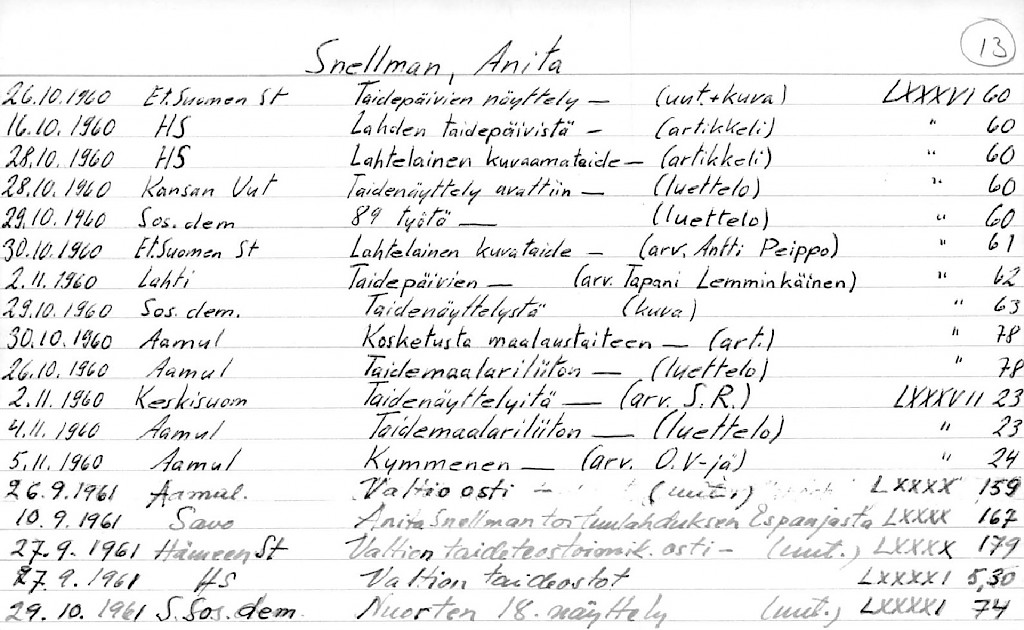 13
Snellman, Anita
26.10.1960 Et.Suomen St Taidepäivien näyttely — (uut.+kuva) LXXXVI 60
16.10.1960 HS Lahden taidepäivistä — (artikkeli) " 60
28.10.1960 HS Lahtelainen kuvaamataide — (artikkeli) " 60
28.10.1960 Kansan Uut Taidenäyttely avattiin — (luettelo) " 60
29.10.1960 Sos.dem 89 työtä — (luettelo) " 60
30.10.1960 Et.Suomen St Lahtelainen kuvataide — (arv. Antti Peippo) " 61
2.11.1960 Lahti Taidepäivien — (arv. Tapani Lemminkäinen) " 62
29.10.1960 Sos.dem. Taidenäyttelystä (kuva) " 63
30.10.1960 Aamul Kosketusta maalaustaiteen — (art.) " 78
26.10.1960 Aamul Taidemaalariliiton — (luettelo) " 78
2.11.1960 Keskisuom Taidenäyttelyitä — (arv. S.R.) LXXXVII 23
4.11.1960 Aamul Taidemaalariliiton — (luettelo) " 23
5.11.1960 Aamul Kymmenen — (arv. O.V-jä) " 24
26.9.1961 Aamul. Valtio osti — LXXXX 159
10.9.1961 Savo Anita Snellman toi tuulahduksen Espanjasta LXXXX 167
27.9.1961 Hämeen St Valtion taideteostoimik. osti — (uut.) LXXXX 179
27.9.1961 HS Valtion taideostot LXXXXI 5,30
29.10.1961 S.Sos.dem. Nuorten 18. näyttely (uut.) LXXXXI 74